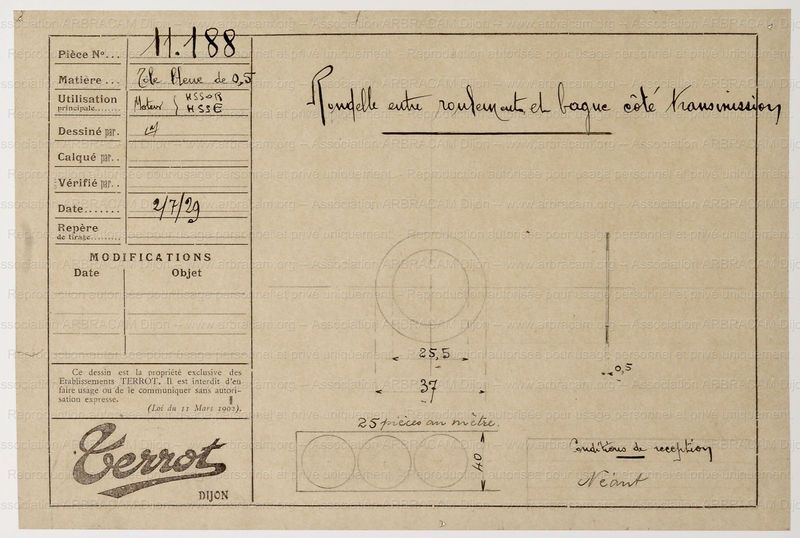 Pièce Nº... 11.188
Matière ... Tôle bleue de 0,5
Utilisation
principale........ Moteur } HSSOR
HSSE
Dessiné par.
Calqué par..
Vérifié par..
Date....... 2/7/29
Repère
de tirage.........
MODIFICATIONS
Date Objet
Ce dessin est la propriété exclusive des
Etablissements TERROT. Il est interdit d'en
faire usage ou de le communiquer sans autori-
sation expresse.
(Loi du 11 Mars 1902).
Terrot
DIJON
Rondelle entre roulements et bague côté transmission
25,5
37
0,5
25 pièces au mètre.
40
Conditions de reception
Néant
Association ARBRACAM Dijon – www.arbracam.org – Reproduction autorisée pour usage personnel et privé uniquement